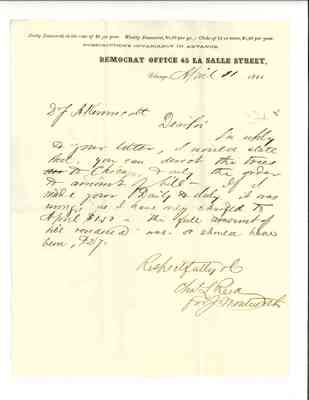 Daily Democrat, at the rate of $6 per year. Weekly Democrat, $1,50 per yr.; Clubs of 12 or more, $1,00 per year.
SUBSCRIPTIONS INVARIABLY IN ADVANCE.
DEMOCRAT OFFICE 45 LA SALLE STREET,
Chicago, April 11 186
Dr J A Kennicott
Dear Sir
In reply
to your letter, I would state
that you can direct the trees
to Chicago, & only the order
to amount of bill – If I
made your Daily & duly it was
wrong, as I have only charged to
April $150 – the full amount of
bill rendered was or should have
been, $27.
Respectfully &c
Chas L Reed
for J Wentworth